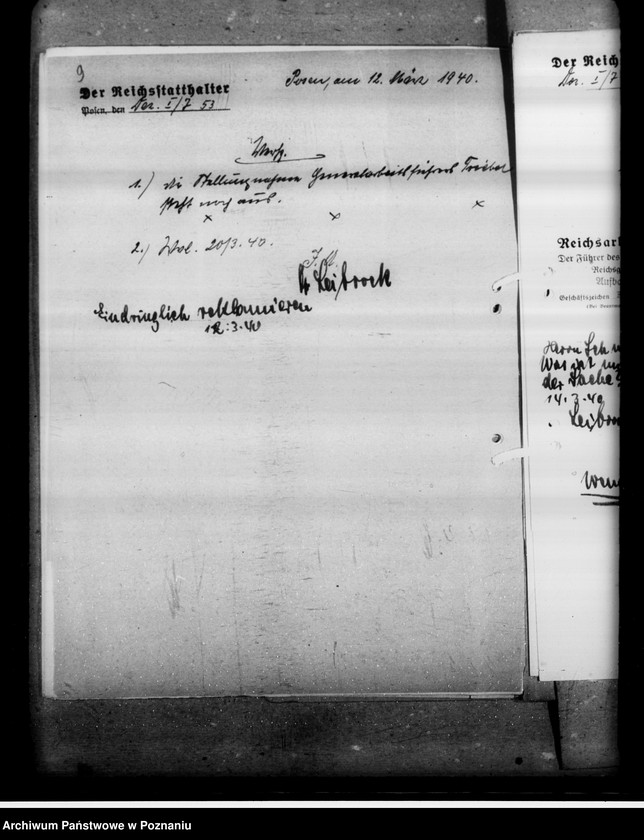 9
Der Reichsstatthalter
Posen, den
I/7 53
Posen, am 12. März 1940.
Verf.
1.) die Stellungnahme Generalarbeitsführers Triebel
steht noch aus.
x x x
2.) Wvl. 20/3.40.
Dr Leibrock
Eindringlich reklamieren
12.3.40
Der Reich
I/7
Reichsar
Der Führer des
Reichsg
Geschäftszeichen
Herrn
Was ist
der Sache
14.3.40
Leibro
Archiwum Państwowe w Poznaniu